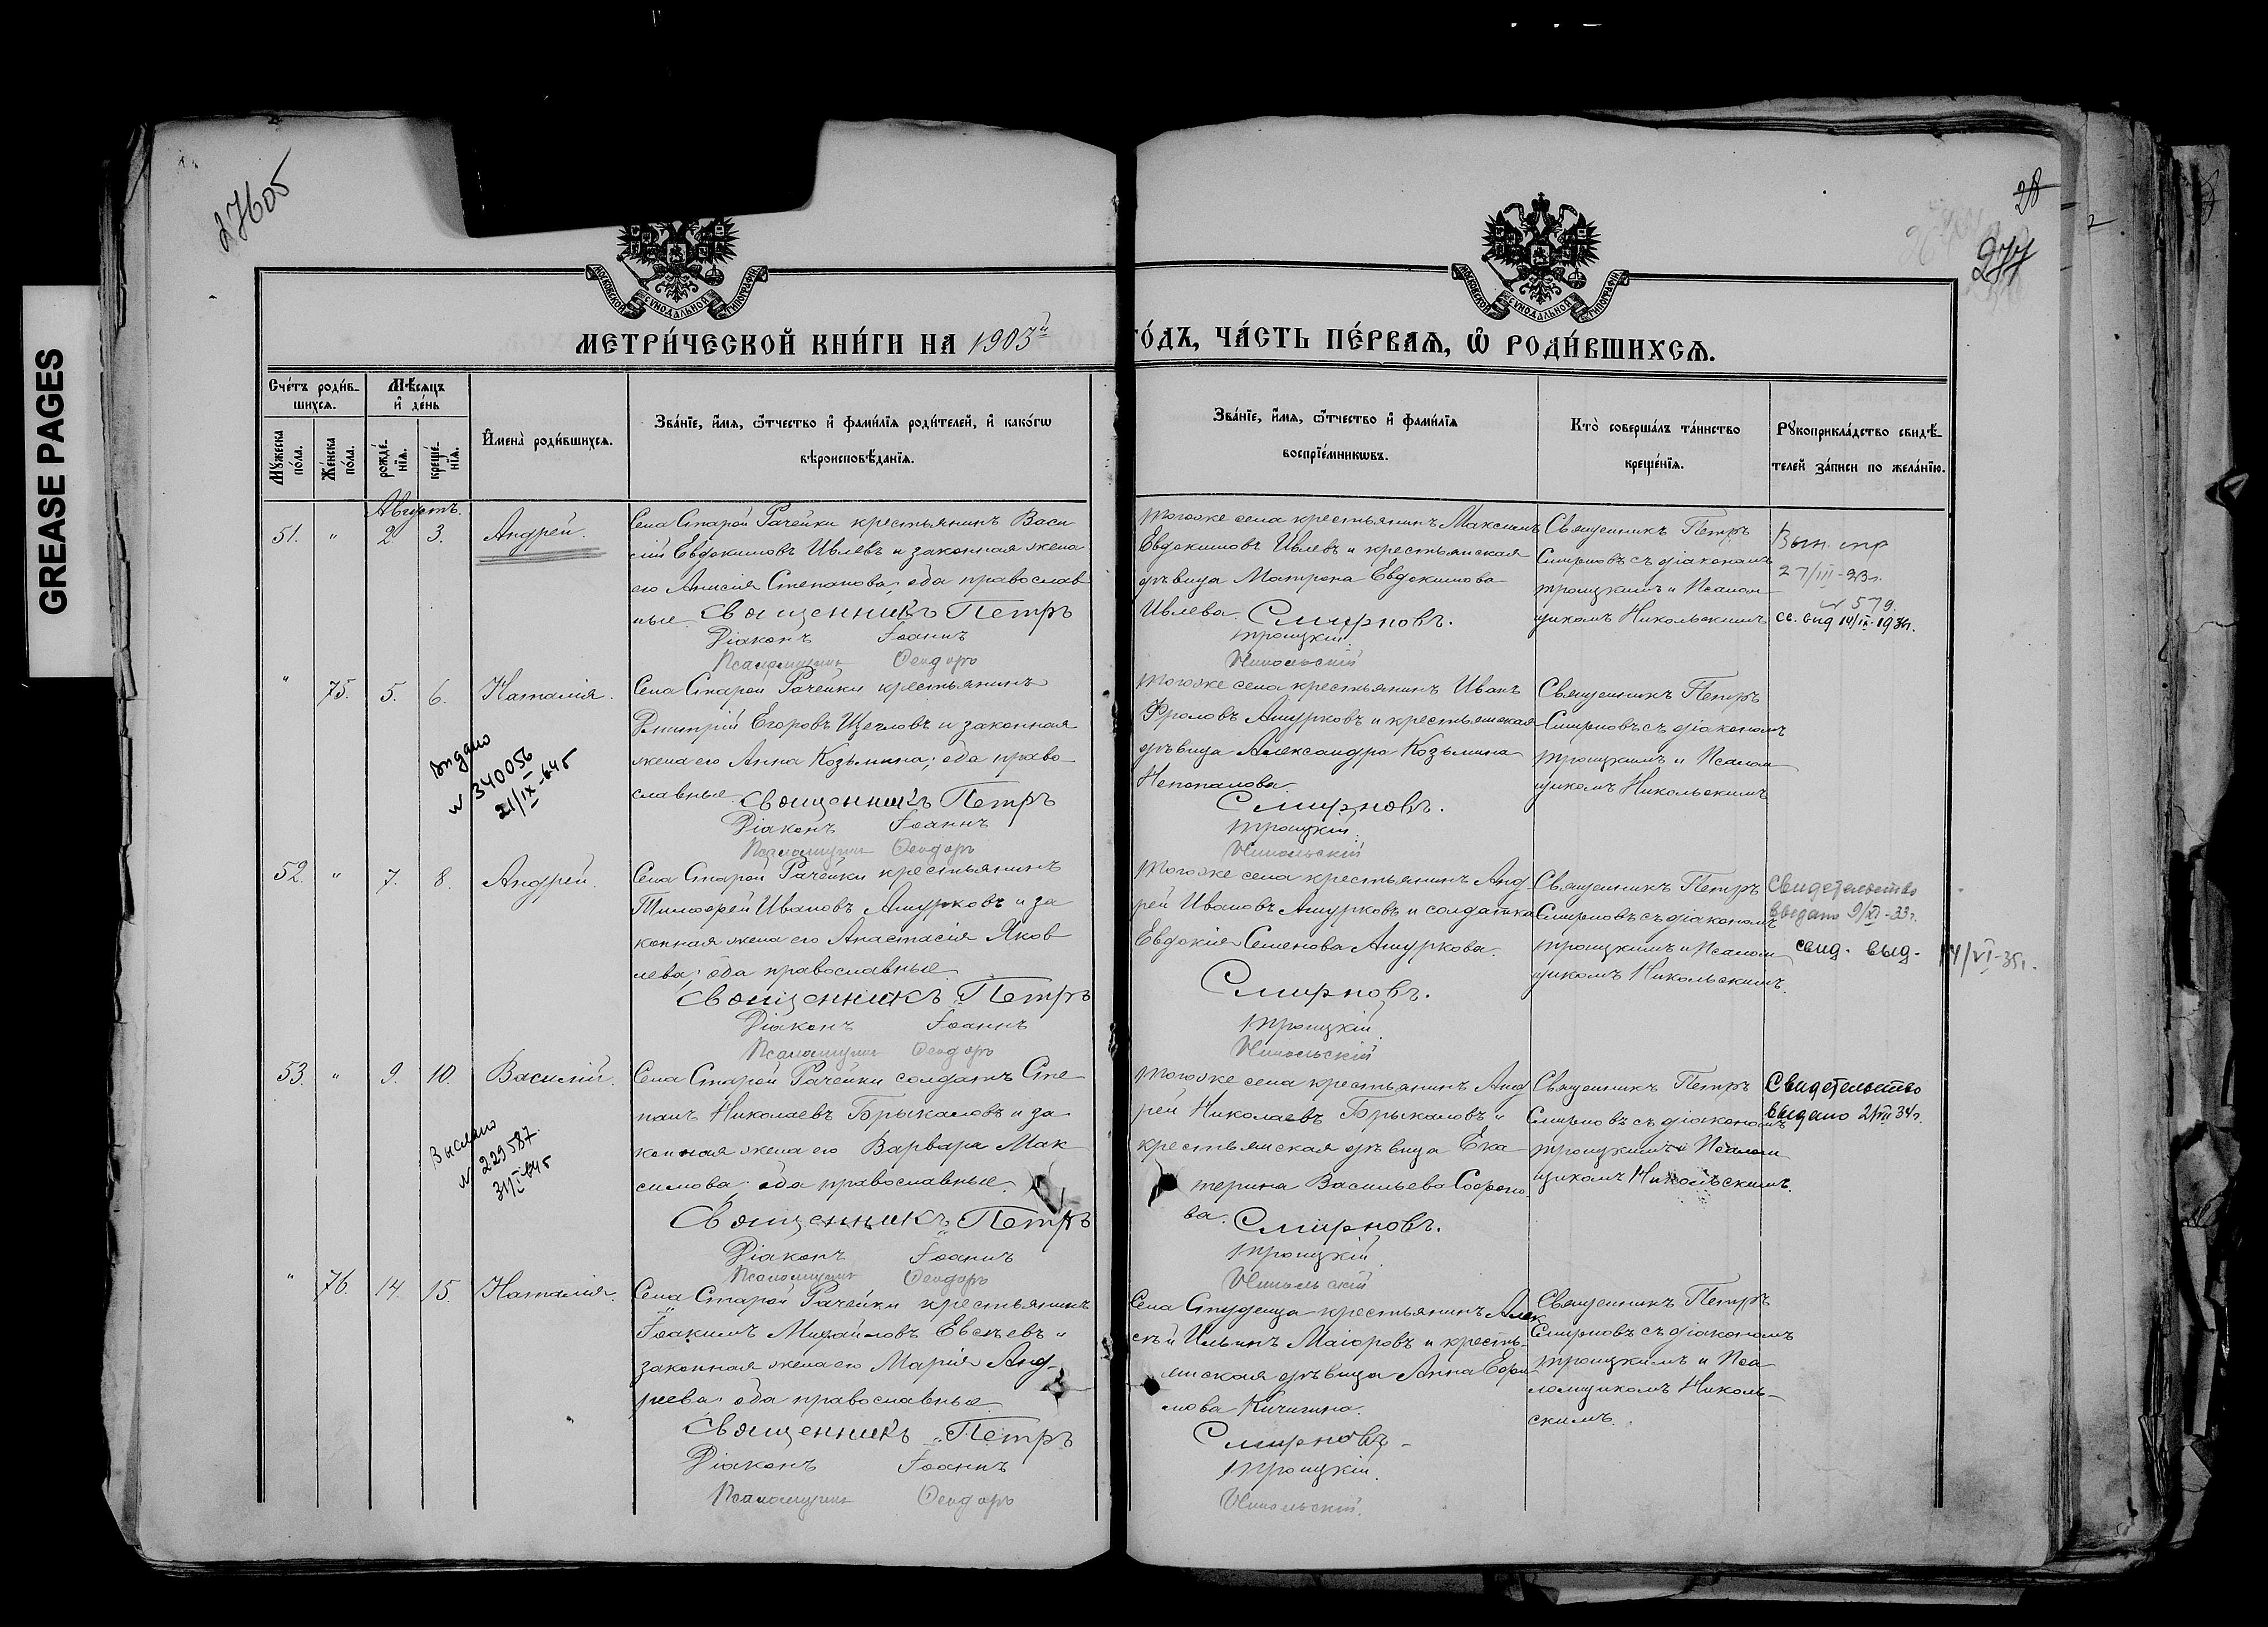 GREASE PAGES
27605
28
277
МОСКОВСКОЙ СѴНОДАЛЬНОЙ ТИПОГРАФІИ
МОСКОВСКОЙ СѴНОДАЛЬНОЙ ТИПОГРАФІИ
МЕТРИ́ЧЕСКОЙ КНИ́ГИ НА 1903й ГО́ДЪ, ЧА́СТЬ ПЕ́РВАѦ, Ѡ РОДИ́ВШИХСѦ.
Сче́тъ роди́в-
шихсѧ.
Мѣ́сѧцъ
и де́нь
Мꙋ́жеска по́ла.
Же́нска по́ла.
рожде́-
нїѧ.
креще́-
нїѧ.
И҆мена̀ роди́вшихсѧ.
Зва́нїе, и҆́мѧ, ѻ҆́тчество и҆ фами́лїѧ роди́телей, и҆ како́гѡ
вѣроисповѣ́данїѧ.
Зва́нїе, и҆́мѧ, ѻ҆́тчество и҆ фами́лїѧ
воспрїе́мникѡвъ.
Кто̀ соверша́лъ та́инство
креще́нїѧ.
Рꙋкоприкла́дство свидѣ́-
телей за́писи по жела́нїю.
Августъ.
51. " 2. 3. Андрей.
Села Старой Рачейки крестьянинъ Васи
лій Евдокимовъ Ивлевъ и законная жена
его Анисія Степанова; оба православ
ные. Священникъ Петръ
Діаконъ Іоаннъ
Псаломщикъ Ѳеодоръ
Тогоже села крестьянинъ Максимъ
Евдокимовъ Ивлевъ и крестьянская
дѣвица Матрона Евдокимова
Ивлева. Смирновъ.
Троицкій
Никольскій
Священникъ Петръ
Смирновъ съ діакономъ
Троицкимъ и Псалом
щикомъ Никольскимъ
27/III-33г.
N 579.
" 75. 5. 6. Наталія.
Выдано
N 340056
21/IX-645
Села Старой Рачейки крестьянинъ
Дмитрій Егоровъ Щегловъ и законная
жена его Анна Козьмина; оба право
славные. Священникъ Петръ
Діаконъ Іоаннъ
Псаломщикъ Ѳеодоръ
Тогоже села крестьянинъ Иванъ
Фроловъ Ашурковъ и крестьянская
дѣвица Александра Козьмина
Непопалова.
Смирновъ.
Троицкій.
Никольскій
Священникъ Петръ
Смирновъ съ діакономъ
Троицкимъ и Псалом
щикомъ Никольскимъ
52. " 7. 8. Андрей.
Села Старой Рачейки крестьянинъ
Тимофей Ивановъ Ашурковъ и за
конная жена его Анастасія Яков
лева; оба православные
Священникъ Петръ
Діаконъ Іоаннъ
Псаломщикъ Ѳеодоръ
Тогоже села крестьянинъ Анд
рей Ивановъ Ашурковъ и солдатка
Евдокія Семенова Ашуркова.
Смирновъ.
Троицкій
Никольскій
Священникъ Петръ
Смирновъ съ діакономъ
Троицкимъ и Псалом
щикомъ Никольскимъ.
Свидетельство
выдано 9/XI-33г.
свид. выд. 14/VI-35г.
53. " 9. 10. Василій.
Выслано
N 229587
Села Старой Рачейки солдатъ Сте
панъ Николаевъ Брыкаловъ и за
конная жена его Варвара Мак
симова; оба православные.
Священникъ Петръ
Діаконъ Іоаннъ
Псаломщикъ Ѳеодоръ
Тогоже села крестьянинъ Анд
рей Николаевъ Брыкаловъ и
крестьянская дѣвица Ека
терина Васильева Софроно
ва. Смирновъ.
Троицкій
Никольскій
Священникъ Петръ
Смирновъ съ діакономъ
Троицкимъ и Псалом
щикомъ Никольскимъ.
Свидетельство
выдано
" 76. 14. 15. Наталія.
Села Старой Рачейки крестьянинъ
Іоакимъ Михайловъ Евсѣевъ и
законная жена его Марія Анд-
реева; оба православные.
Священникъ Петръ
Діаконъ Іоаннъ
Псаломщикъ Ѳеодоръ
Села Студенца крестьянинъ Алек
сѣй Ильинъ Маіоровъ и кресть-
янская дѣвица Анна
Кичигина.
Смирновъ
Троицкій.
Никольскій.
Священникъ Петръ
Смирновъ съ діакономъ
Троицкимъ и Пса
ломщикомъ Николь-
скимъ.